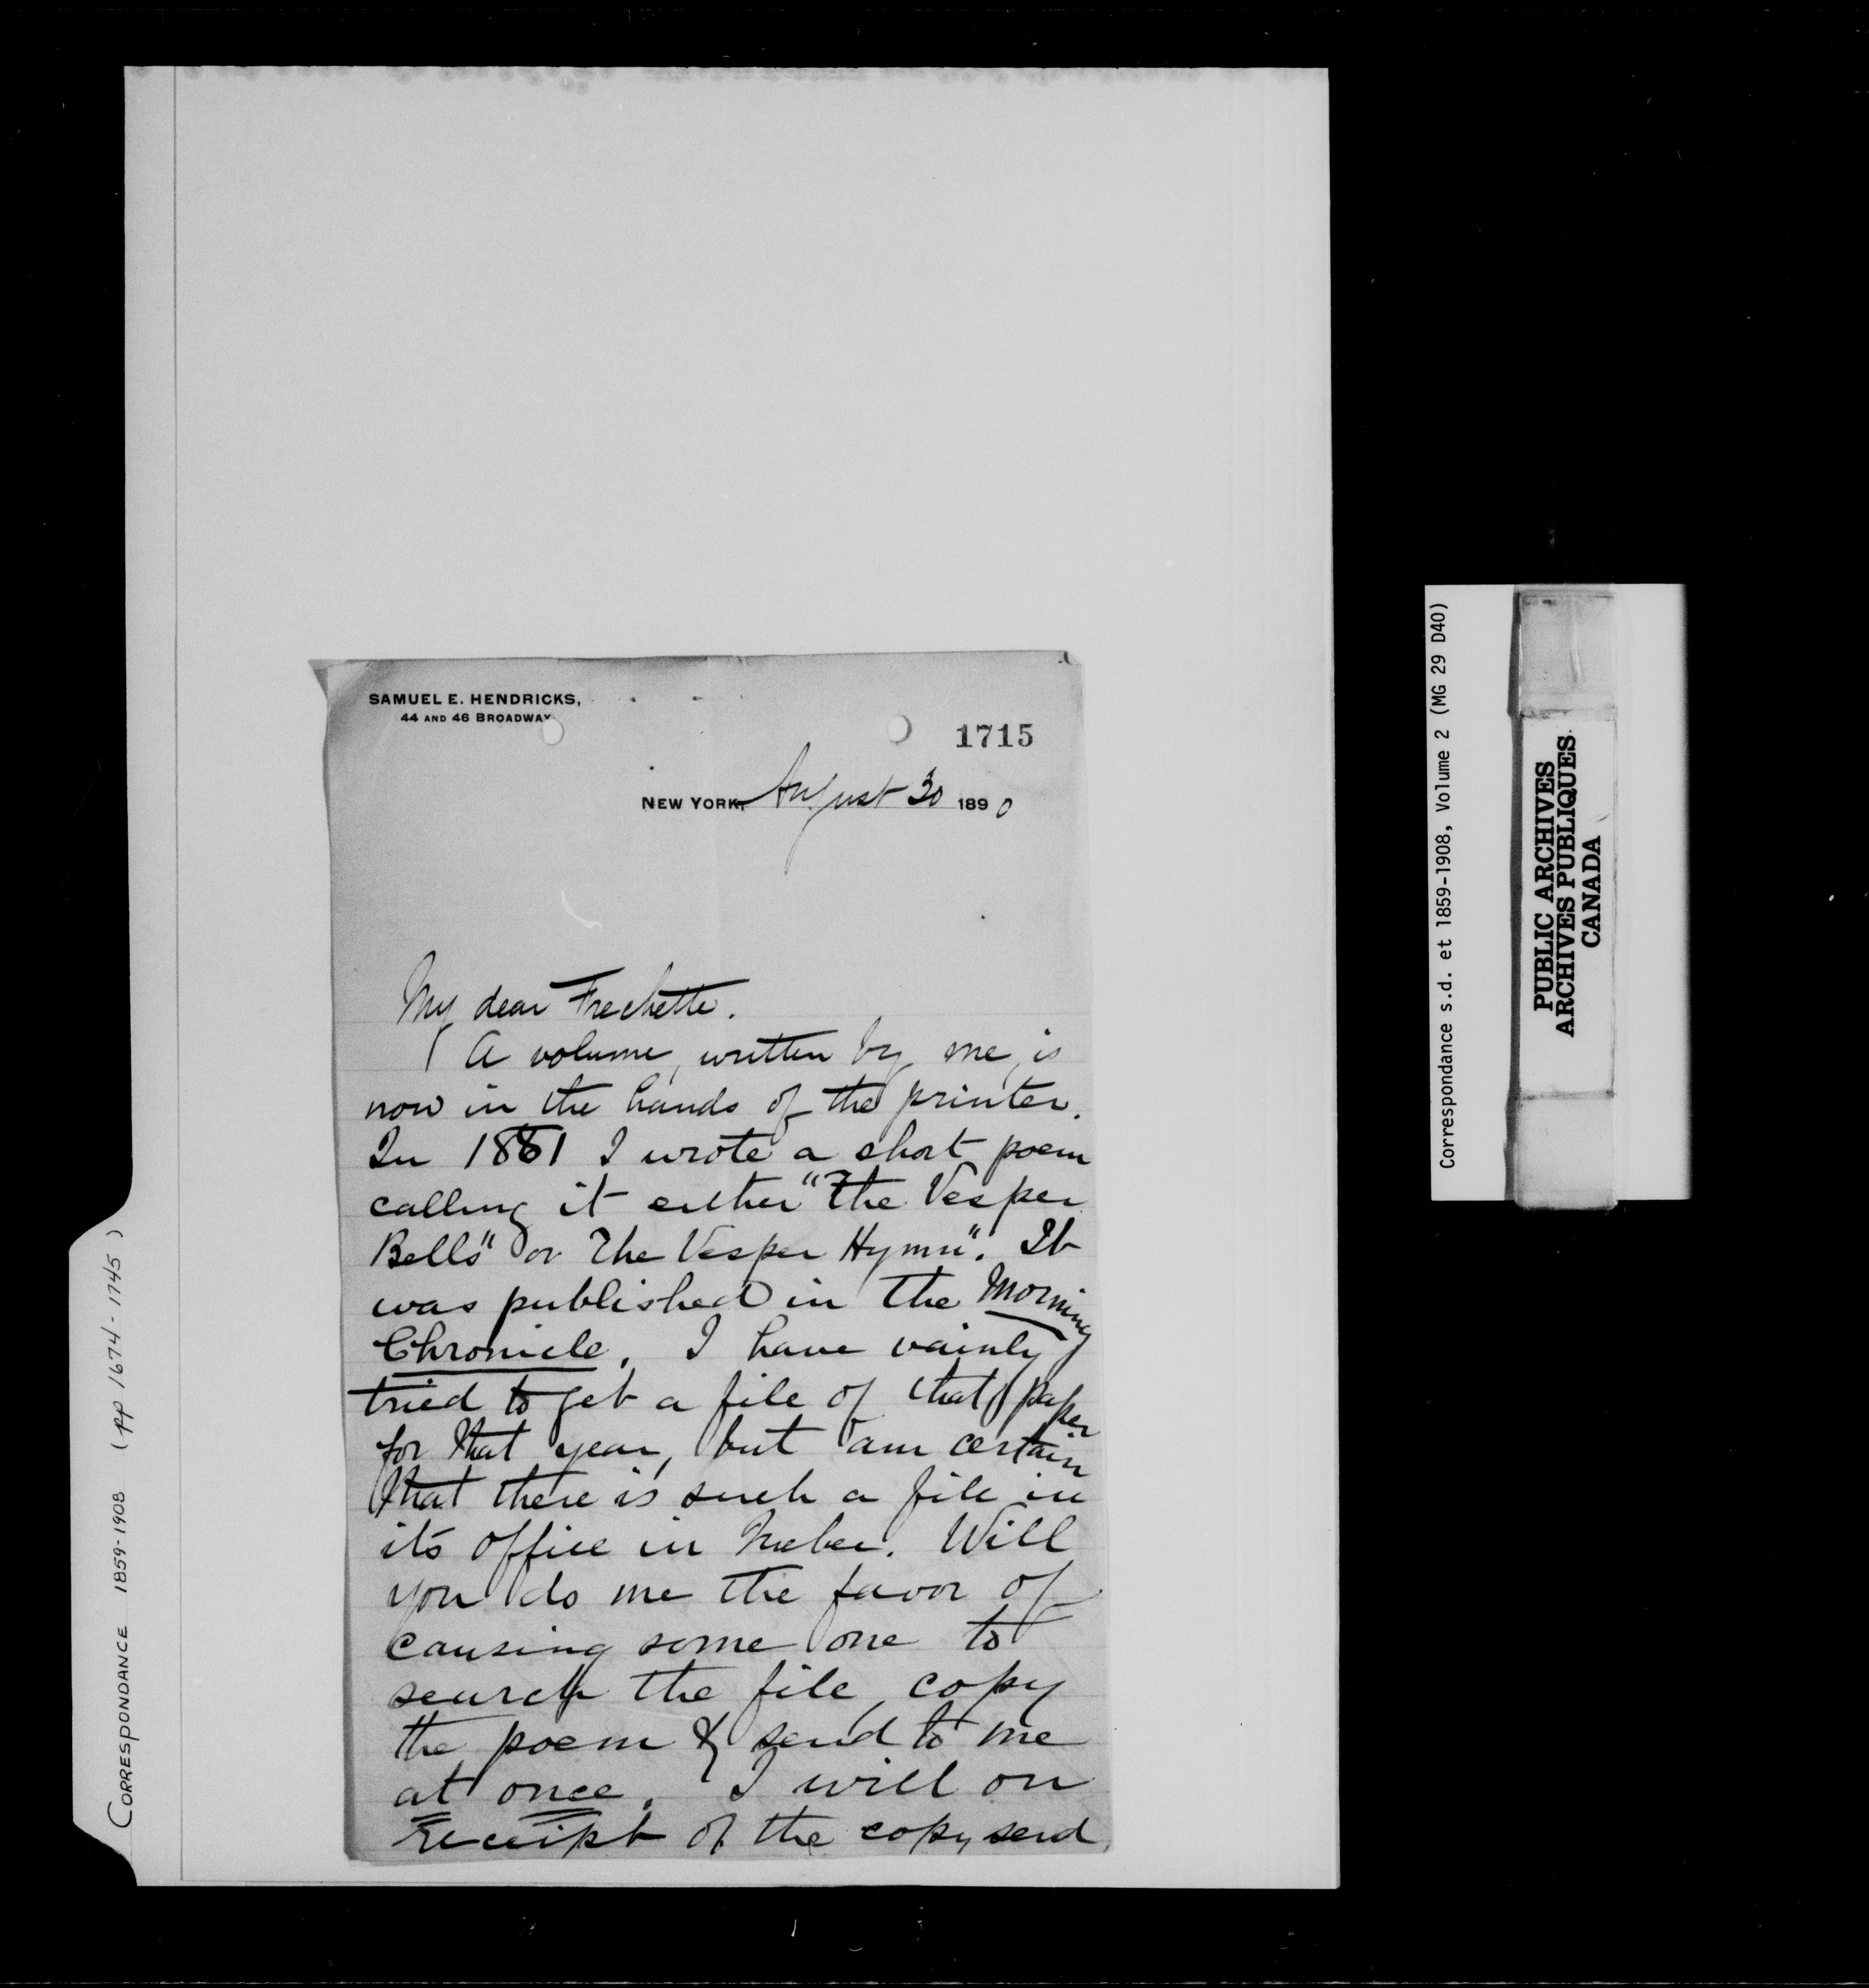 SAMUEL E. HENDRICKS,
44 AND 46 BROADWAY
1715
NEW YORK, August 30 1890
My dear Frechette.
A volume, written by me, is
now in the hands of the printer.
In 1861 I wrote a short poem
calling it either "The Vesper
Bells" or The Vesper Hymn". It
was published in the Morning
Chronicle. I have vainly
tried to get a file of that paper
for that year, but am certain
that there is such a file in
its office in Quebec. Will
you do me the favor of
causing some one to
search the file, copy
the poem & send to me
at once. I will on
receipt of the copy send
CORRESPONDANCE 1859-1908 (pp 1674-1745)
Correspondance s.d. et 1859-1908, Volume 2 (MG 29 D40)
PUBLIC ARCHIVES
ARCHIVES PUBLIQUES
CANADA